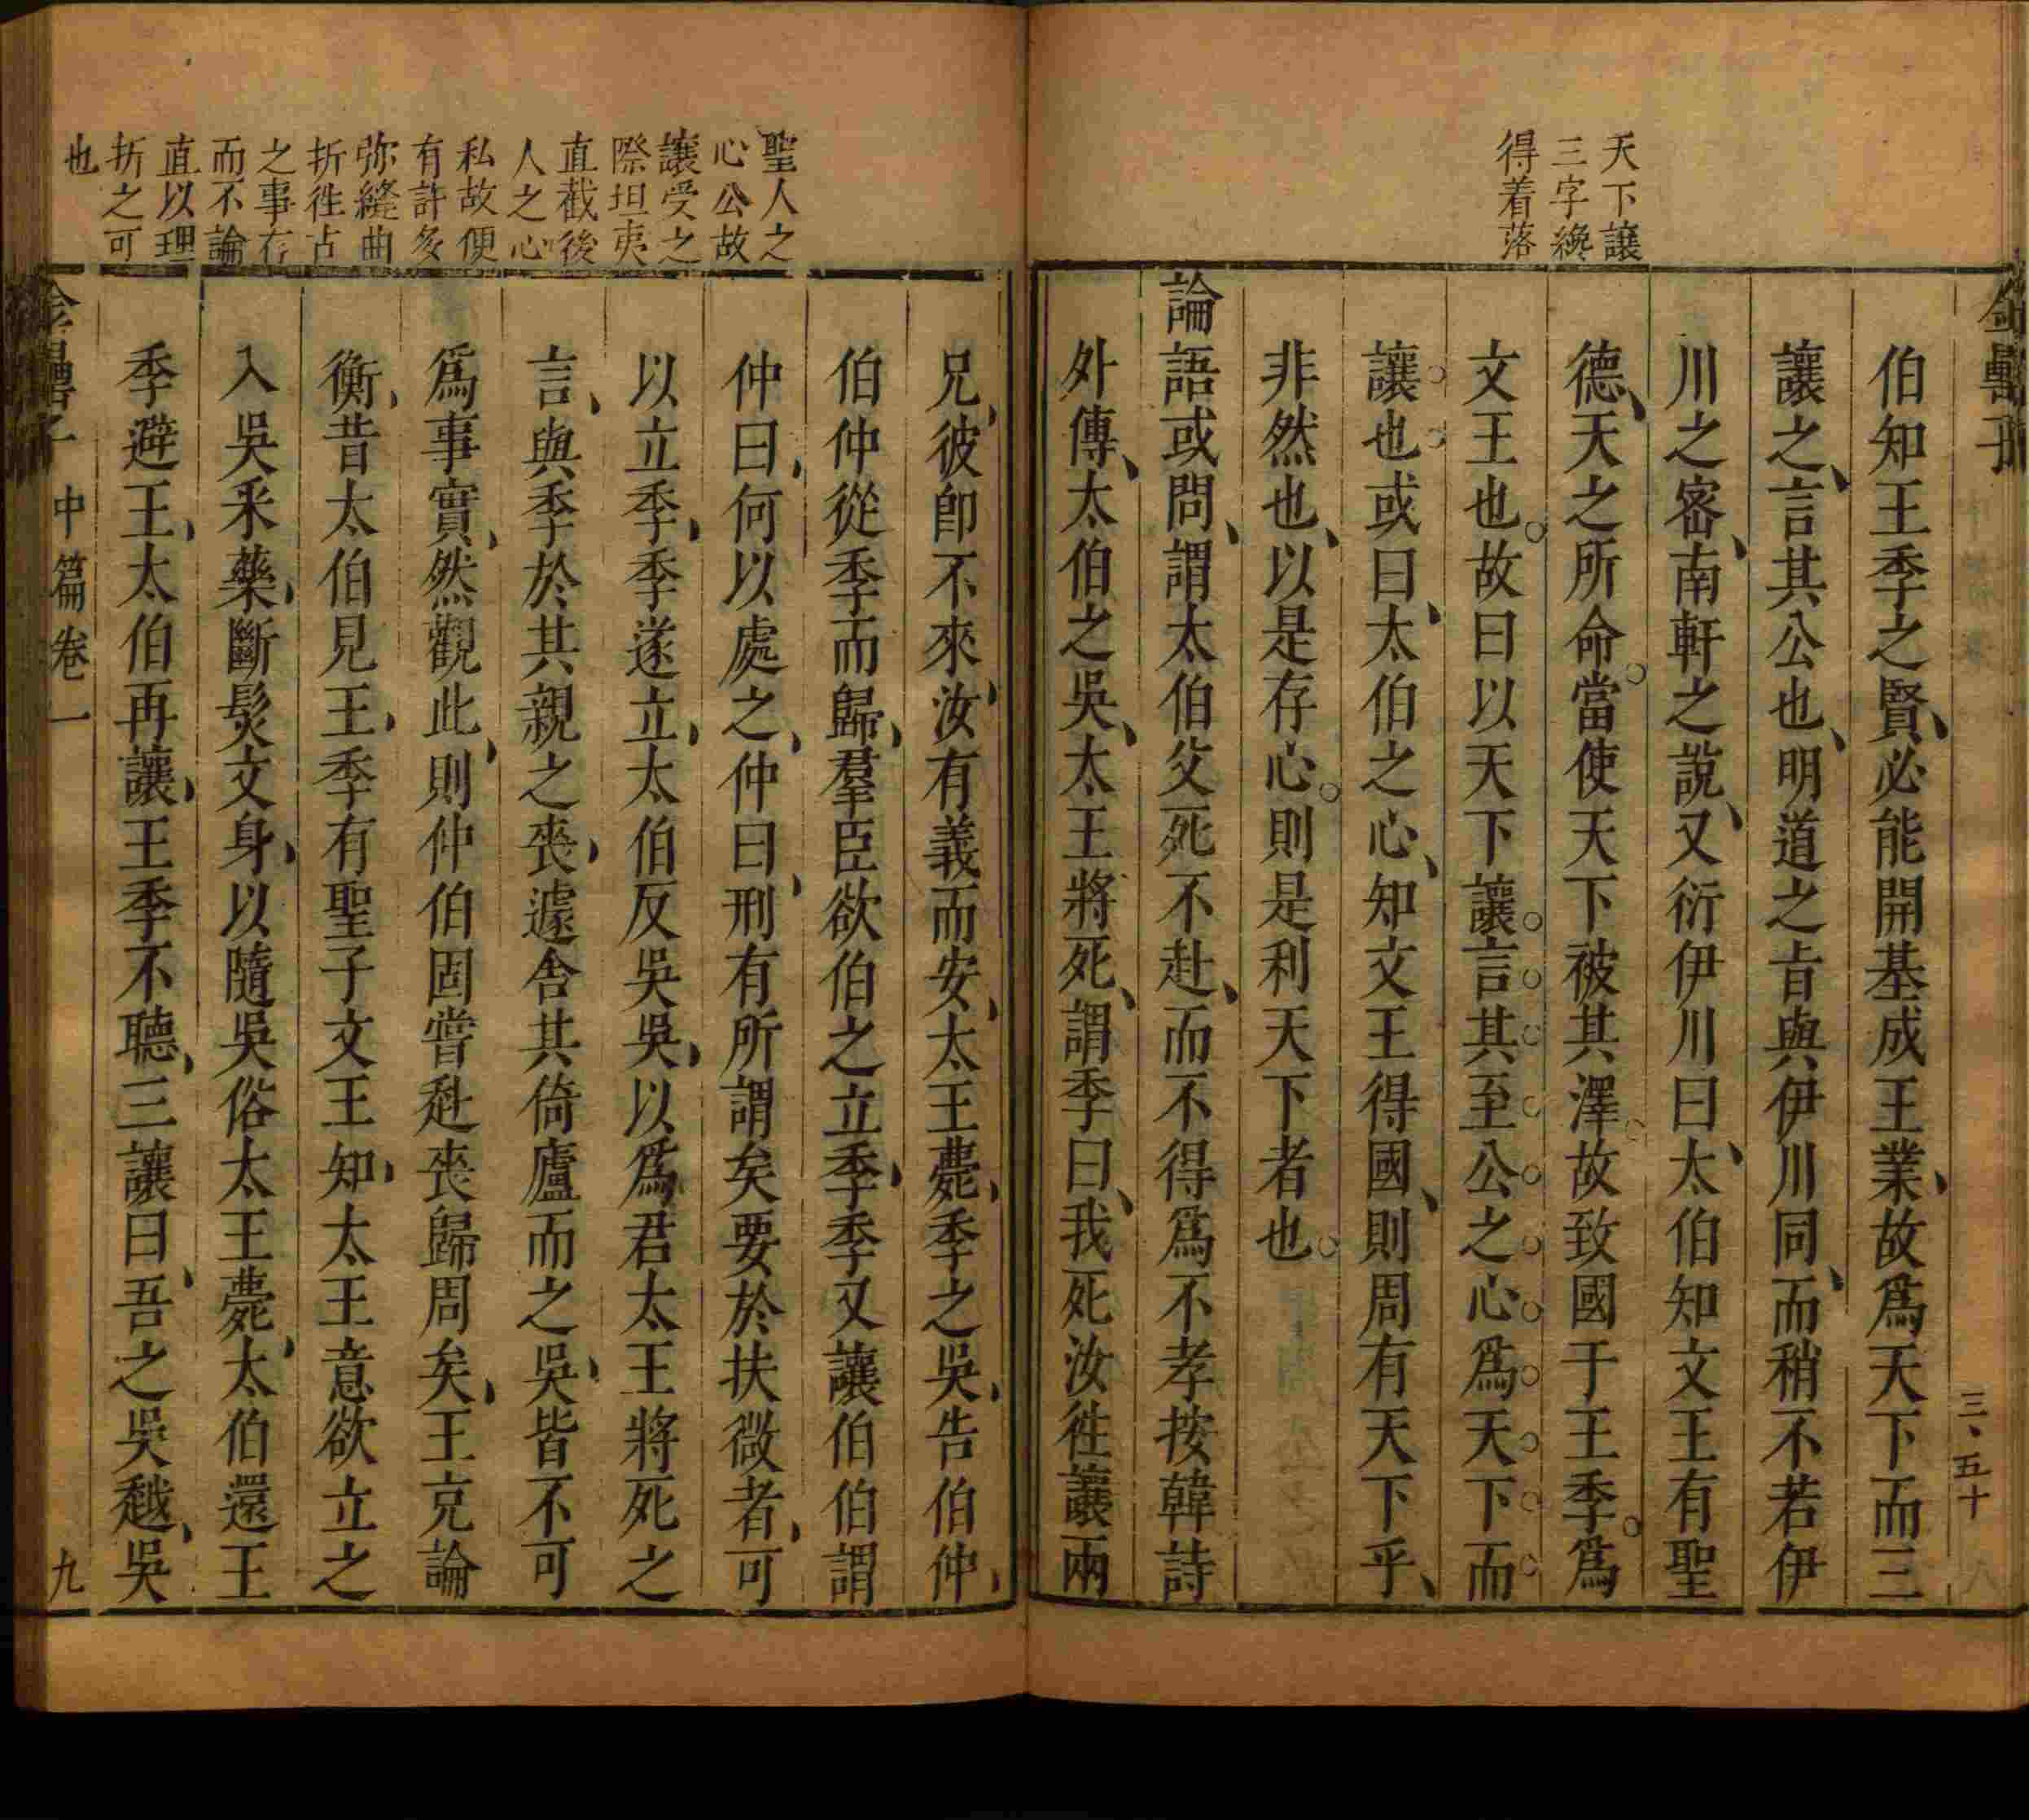 天下讓
三字纔
得着落
伯知王季之賢必能開基成王業故爲天下而三
讓之言其公也明道之旨與伊川同而稍不若伊
川之密南軒之說又衍伊川曰太伯知文王有聖
德天之所命當使天下被其澤故致國于王季爲
文王也故曰以天下讓言其至公之心爲天下而
讓也或曰太伯之心知文王得國則周有天下乎
非然也以是存心則是利天下者也
論語或問謂太伯父死不赴而不得爲不孝按韓詩
外傳太伯之吳太王將死謂季曰我死汝徃讓兩
聖人之
心公故
讓受之
際坦夷
直截後
人之心
私故便
有許多
弥縫曲
折徃古
之事存
而不論
直以理
折之可
也
兄彼卽不來汝有義而安太王薨季之吳告伯仲
伯仲從季而歸羣臣欲伯之立季季又讓伯伯謂
仲曰何以處之仲曰刑有所謂矣要於扶微者可
以立季季遂立太伯反吳吳以爲君太王將死之
言與季於其親之喪遽舍其倚廬而之吳皆不可
爲事實然觀此則仲伯固嘗赴喪歸周矣王克論
衡昔太伯見王季有聖子文王知太王意欲立之
入吳采藥斷髮文身以隨吳俗太王薨太伯還王
季避王太伯再讓王季不聽三讓曰吾之吳越吳
中篇卷一
九
三、五十